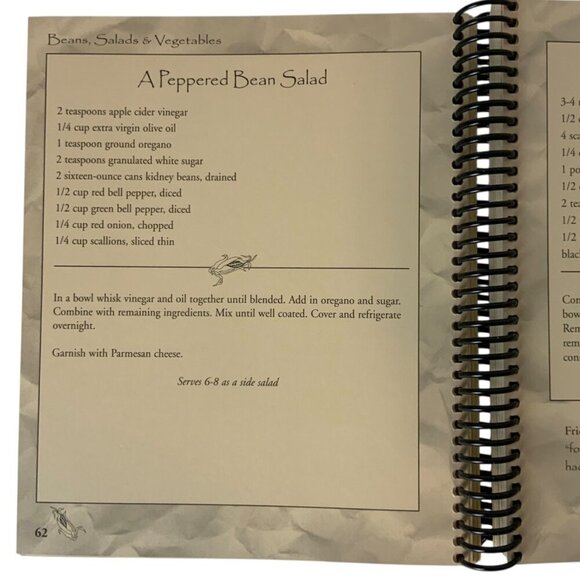 Beans, Salads & Vegetables
A Peppered Bean Salad
2 teaspoons apple cider vinegar
1/4 cup extra virgin olive oil
1 teaspoon ground oregano
2 teaspoons granulated white sugar
2 sixteen-ounce cans kidney beans, drained
1/2 cup red bell pepper, diced
1/2 cup green bell pepper, diced
1/4 cup red onion, chopped
1/4 cup scallions, sliced thin
In a bowl whisk vinegar and oil together until blended. Add in oregano and sugar.
Combine with remaining ingredients. Mix until well coated. Cover and refrigerate
overnight.
Garnish with Parmesan cheese.
Serves 6-8 as a side salad
62
3-4
1/2
4
1/4
1
1/2
2
1/2
1/2